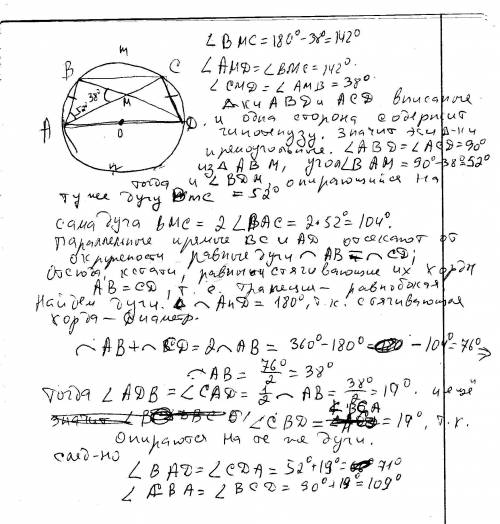 m
B
C
38°
M
52°
A
O
D
n
∠BMC = 180° - 38° = 142°
∠AMD = ∠BMC = 142°
∠CMD = ∠AMB = 38°
△ки ABD и ACD вписанные
и одна сторона содержит
гипотенузу. Значит эти △-ки
прямоугольные. ∠ABD = ∠ACD = 90°
из △ABM, угол ∠BAM = 90° - 38° = 52°
тогда и ∠BDM опирающийся на
ту же дугу BmC = 52°
сама дуга BMC = 2∠BAC = 2·52° = 104°.
Параллельные прямые BC и AD отсекают от
окружности равные дуги ◠AB = ◠CD;
Отсюда, кстати, равны и стягивающие их хорды
AB = CD, т.е. трапеция - равнобокая
Найдем дуги. ◠AnD = 180°, т.к. стягивающая
хорда - диаметр.
◠AB + ◠CD = 2◠AB = 360° - 180° - 104° = 76° ⇒
◠AB = 76°/2 = 38°
Тогда ∠ADB = ∠CAD = 1/2 ◠AB = 38°/2 = 19°. и ещё
∠BCA
∠CBD = = 19°, т.к.
Опираются на те же дуги.
след-но
∠BAD = ∠CDA = 52° + 19° = 71°
∠ABA = ∠BCD = 90° + 19° = 109°